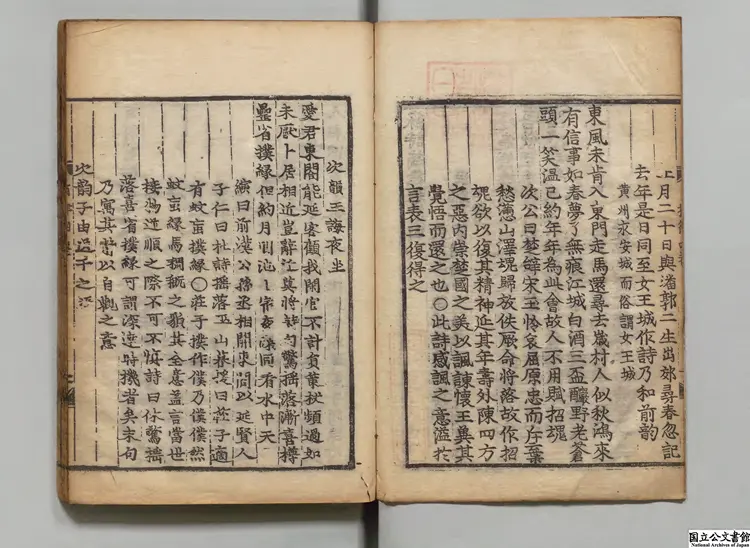 正月二十日與潘郭二生出郊尋春忽記
去年是日同至女王城作詩乃和前韵
黄州永安城而俗謂女王城
東風未肯入東門走馬還尋去歲村人似秋鴻來
有信事如春夢了無痕江城白酒三盃釅野老蒼
頭一笑溫已約年年為此會故人不用賦招魂
次公曰楚辝宋玉怜哀屈原忠而斥棄
愁懣山澤魂歸放佚厥命將落故作招
魂欲以復其精神延其年壽外陳四方
之惡内崇楚國之美以諷諫懷王冀其
覺悟而還之也〇此詩感諷之意溢扵
言表三復得之
次韻王誨夜坐
愛君東閣能延客顧我閑官不計員策杖頻過如
未厭卜居相近豈辭遷莫將詩句驚摇落漸喜樽
罍省撲緣但約月明池上宿夜深同看水中天
演曰前漢公孫丞相開東閤以延賢人
子仁曰杜詩摇落巫山暮援曰莊子適
有蚊䖟撲緣〇莊子撲作僕乃僕僕然
蚊䖟緣馬稠穊之㒵其全意盖言當世
接物逆順之際不可不慎詩曰休驚摇
落喜省撲緣可謂深達時機者矣末句
乃寓其當以自觀之意
次韵子由